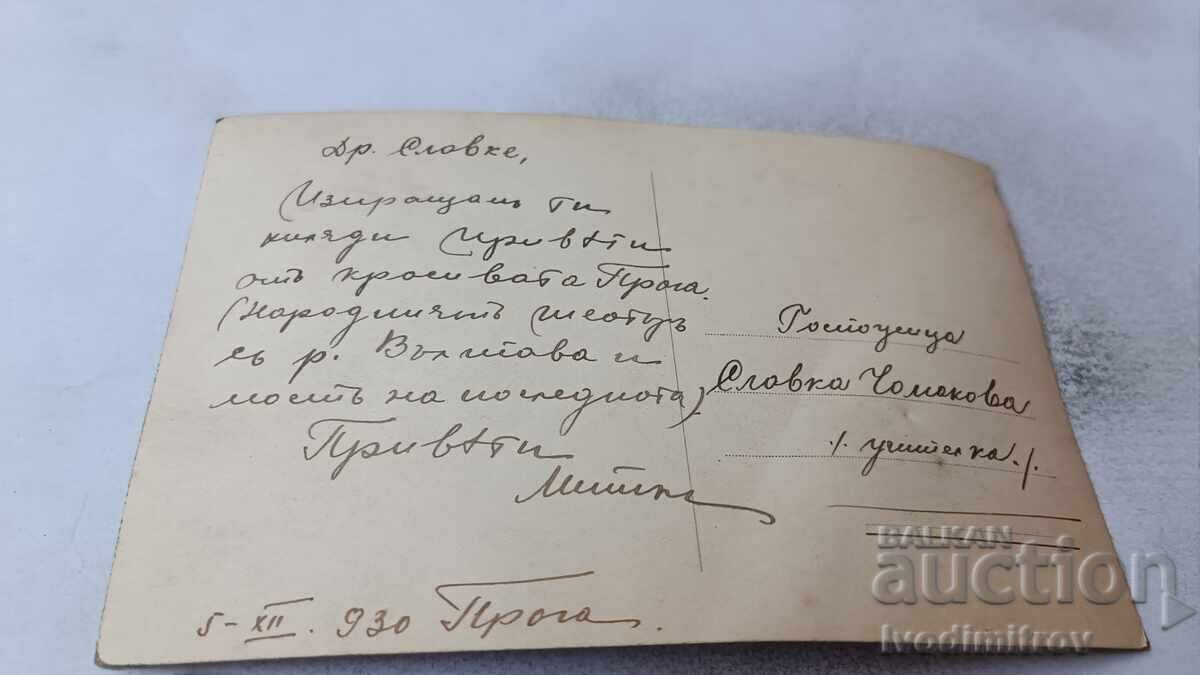 Др. Славке,
Изпращамъ ти
хиляди привѣти
отъ красивата Прага.
(Народниятъ театъръ
съ р. Вълтава и
мостъ на последната)
Привѣти
Митка
5-XII. 930 Прага.
Госпоцица
Славка Чомакова
./. учителка ./.
BALKAN
auction
Ivodimitrov